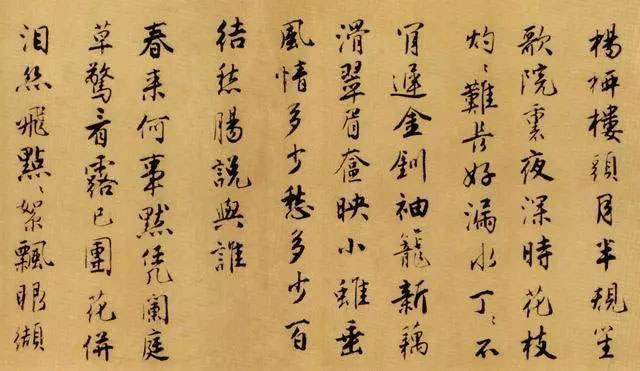 楊栁樓頭月半規笙
歌院裏夜深時花枝
灼〻難長好漏水丁〻不
肯遲金釧袖籠新藕
滑翠眉奩映小垂
風情多少愁多少百
結愁腸說與誰
春來何事默凭闌庭
草驚看露已團花併
泪絲飛點〻絮飄眼纈